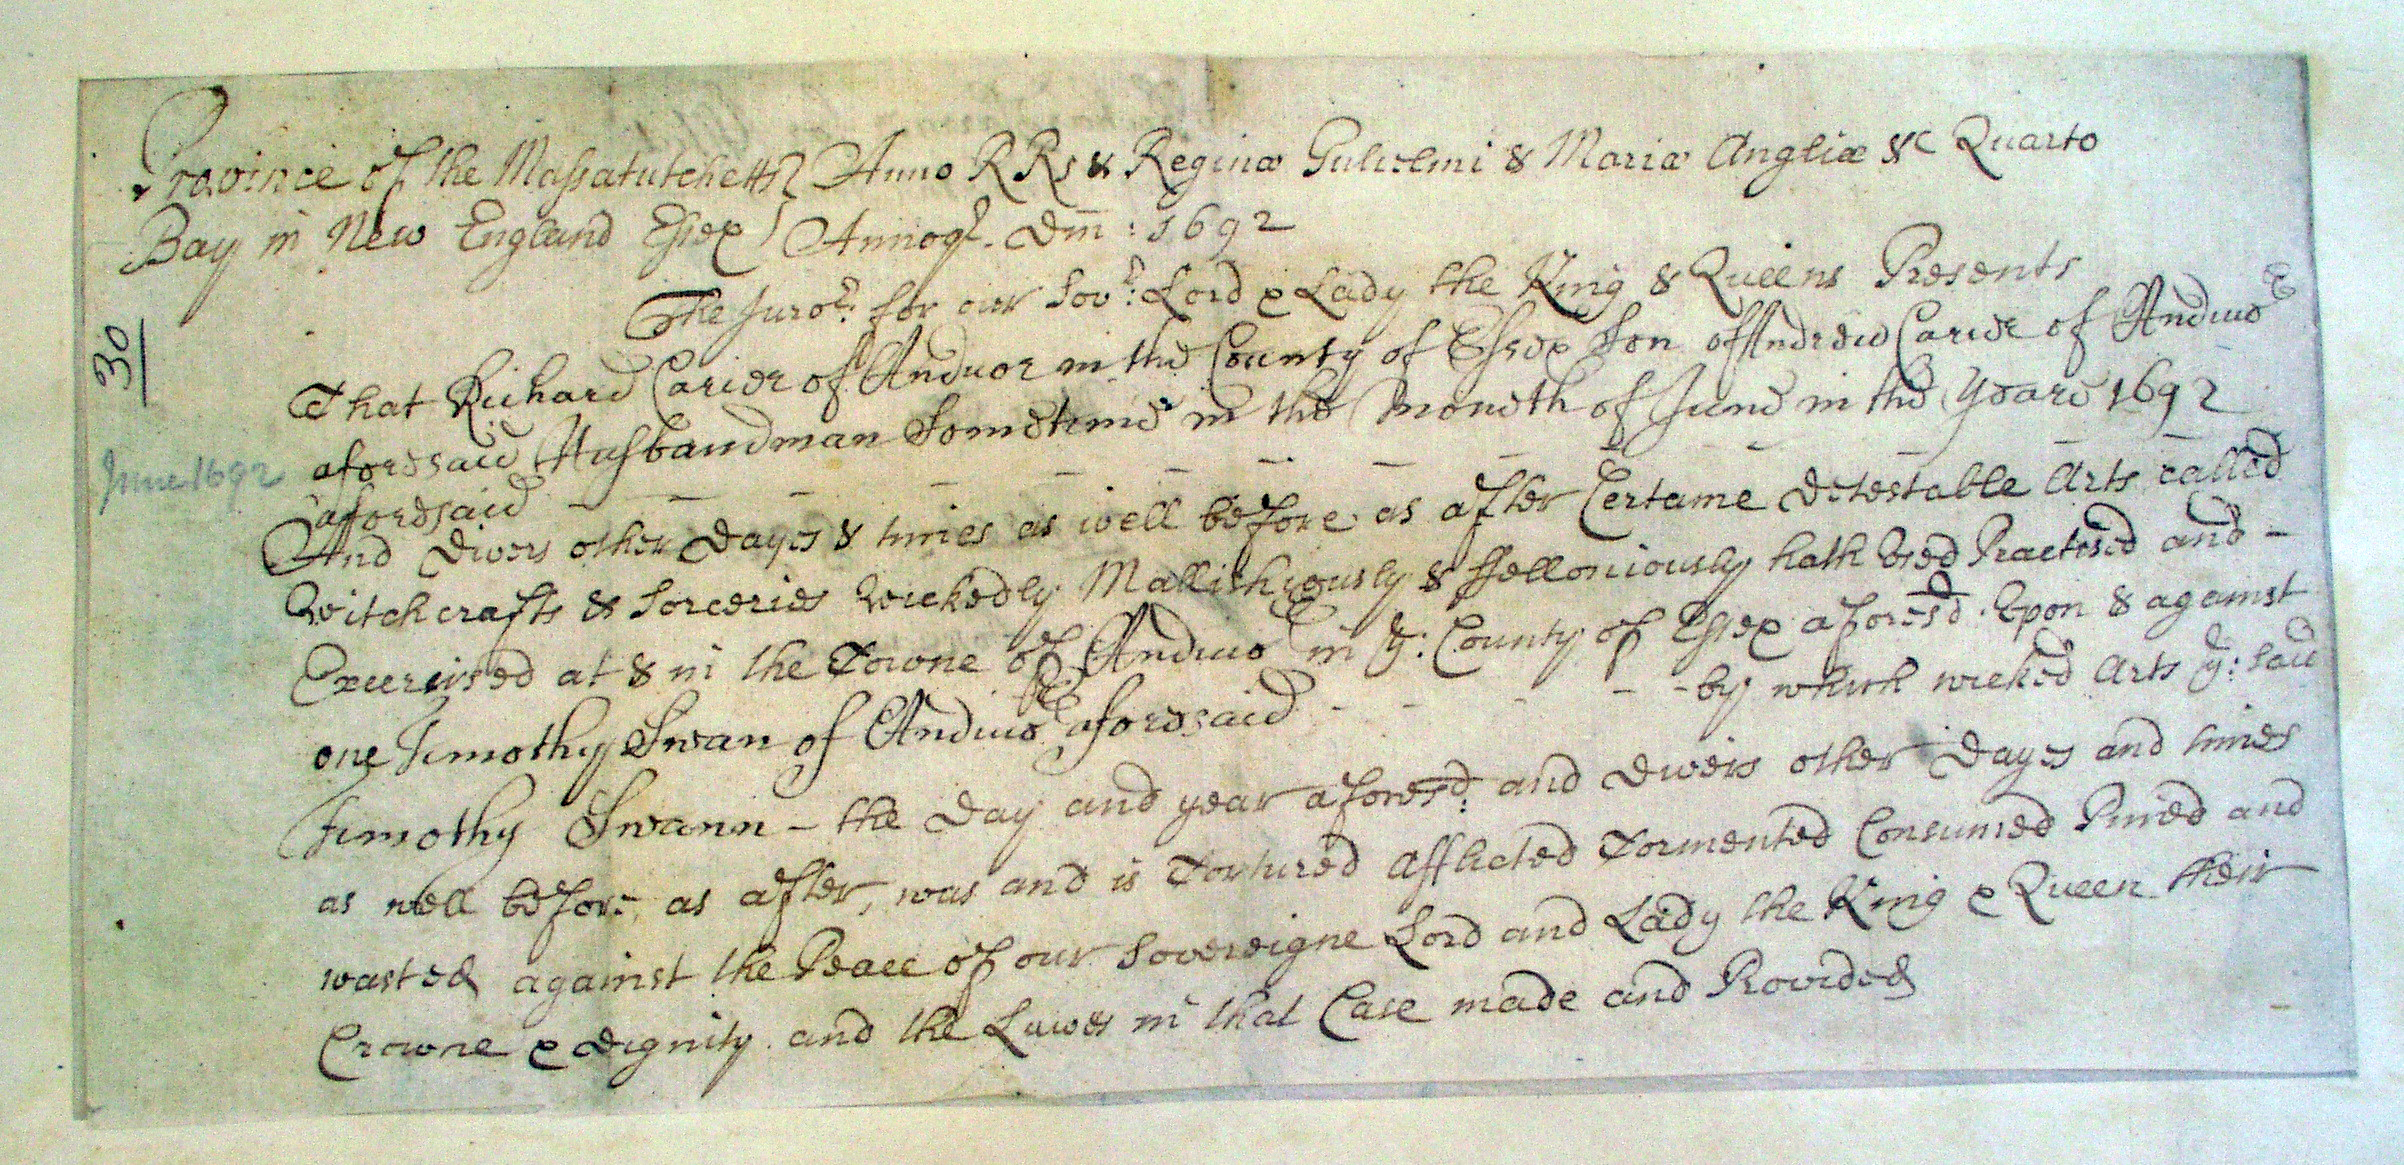 Province of the Massatutchetts Anno R Rs & Reginæ Gulielmi & Mariæ Angliæ &c Quarto
Bay in New England Essex Annoqe. Dm̄ : 1692
The Juror: for our Sovr: Lord & Lady the King & Queens Presents
30
That Richard Carier of Anduor in the County of Essex Son of Andrew Carier of Andiuo
aforesaid Husbandman Sometime in the moneth of June in the Yeare 1692
June 1692
aforesaid - - - - - - - - - -
And Divers other Dayes & times as well before as after Certaine Detestable Arts called
Witchcrafts & Sorceries Wickedly Mallishiously & ffelloniously hath Vsed Practised and -
Excersised at & in the Towne of Andiuo in ye: County of Essex aforesd. Vpon & against
one Timothy Swan of Andiuo aforesaid - - - - - by which wicked Arts ye: said
Timothy Swann - the Day and year aforesd: and Divers other Dayes and times
as well before as after, was and is Tortured Afflicted Tormented Consumed Pined and
wasted against the Peace of our Sovereigne Lord and Lady the King & Queen their
Crowne & Dignity and the Lawes in that Case made and Provided